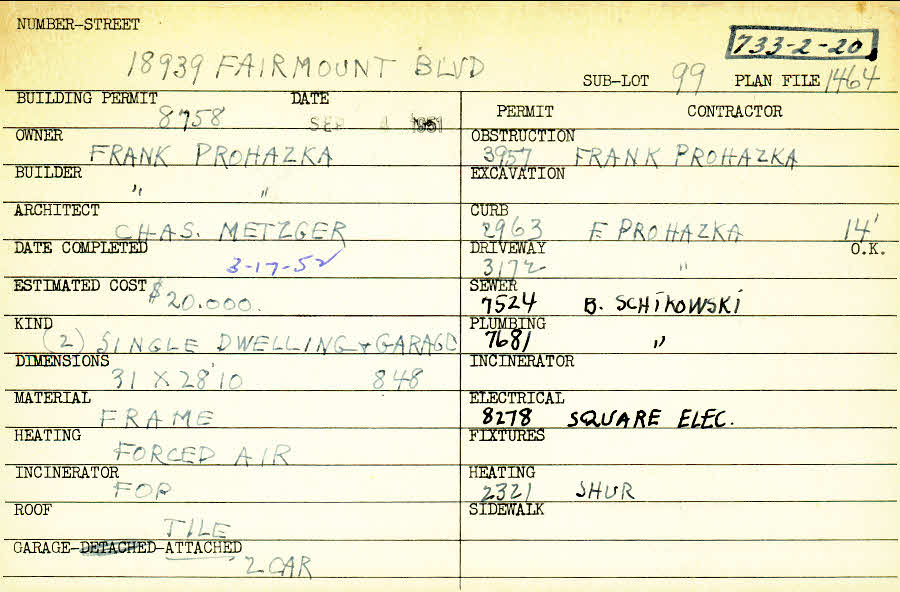 NUMBER-STREET
733-2-20
18939 FAIRMOUNT BLVD
SUB-LOT 99 PLAN FILE 1464
BUILDING PERMIT 8758 DATE SEP 4 1951
OWNER FRANK PROHAZKA
BUILDER " "
ARCHITECT CHAS. METZGER
DATE COMPLETED 3-17-52
ESTIMATED COST $20.000.
KIND (2) SINGLE DWELLING + GARAGE
DIMENSIONS 31 X 28'10 848
MATERIAL FRAME
HEATING FORCED AIR
INCINERATOR
ROOF TILE
GARAGE-DETACHED-ATTACHED 2 CAR
PERMIT CONTRACTOR
OBSTRUCTION 3957 FRANK PROHAZKA
EXCAVATION
CURB 2963 F. PROHAZKA 14'
DRIVEWAY 3172 " O.K.
SEWER 7524 B. SCHIKOWSKI
PLUMBING 7681 "
INCINERATOR
ELECTRICAL 8278 SQUARE ELEC.
FIXTURES
HEATING 2321 SHUR
SIDEWALK